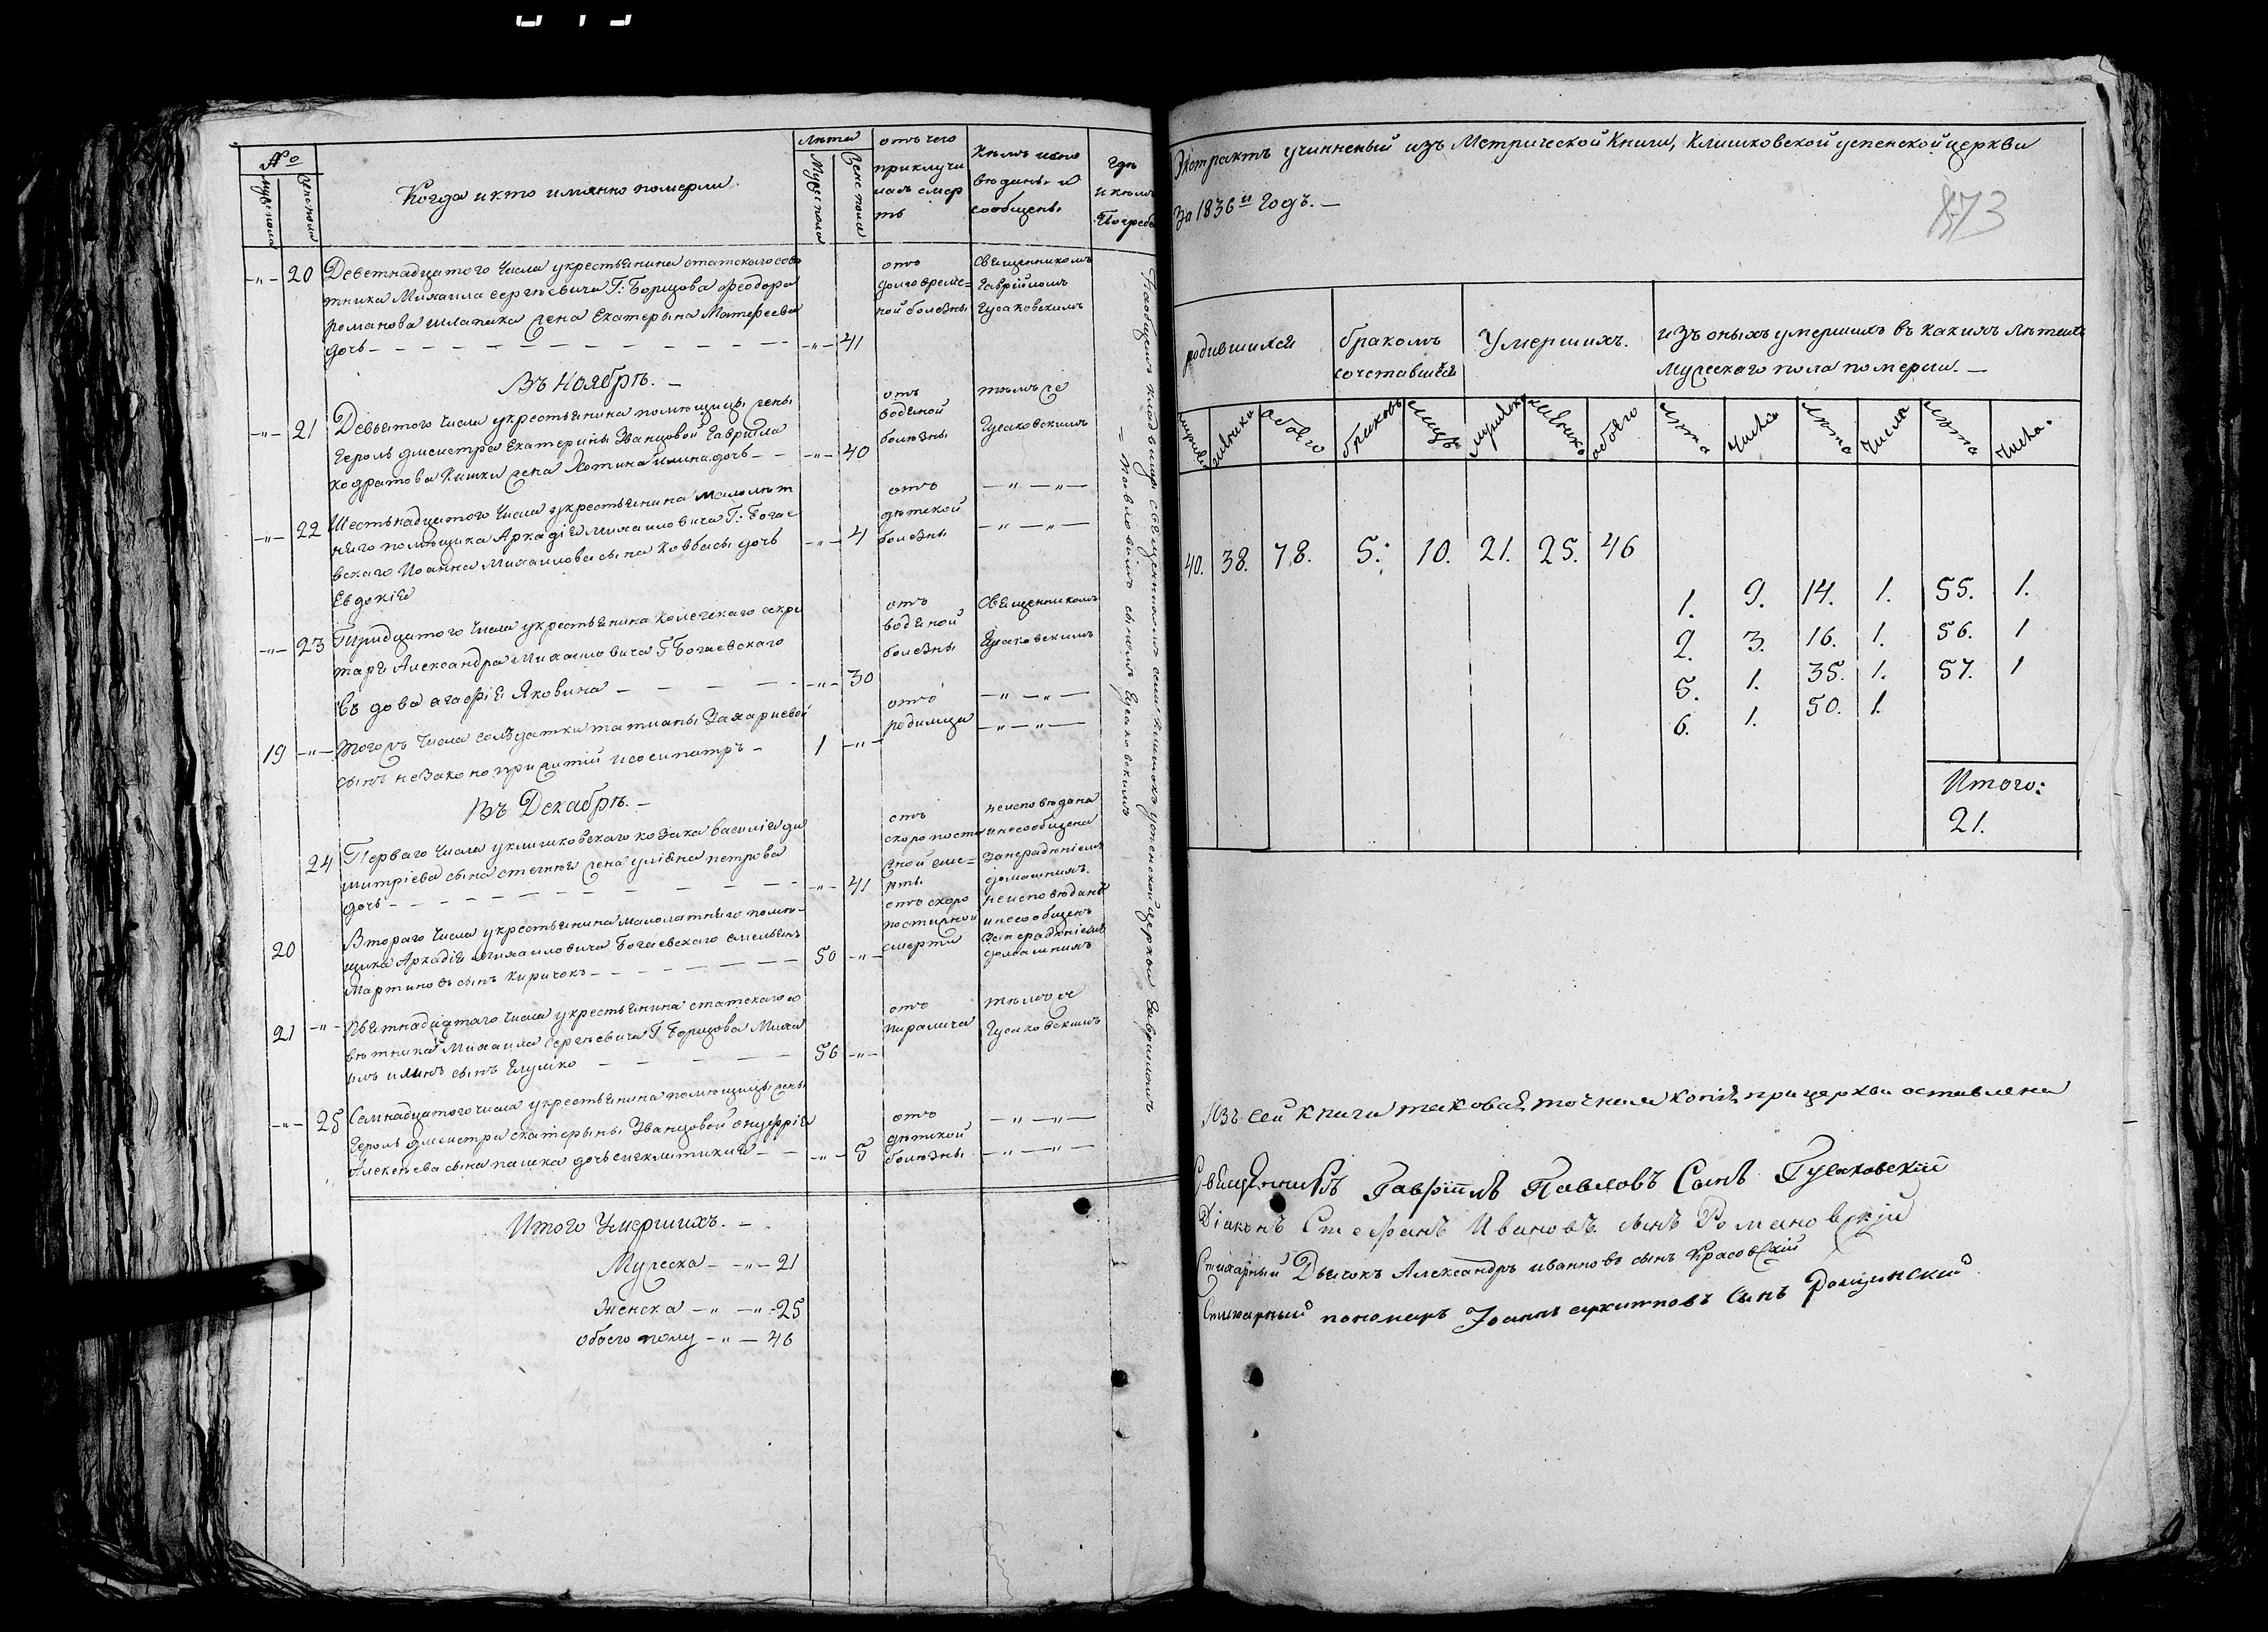 №
Когда и кто имянно померли.
Лѣта
отъ чего приключи лась смер ть
Кѣмъ испо вѣданы и сообщены
Гдѣ и кѣмъ Погребе
Муже пола
Женс пола
20 Деветнадцатого Числа у крестьянина статского сове
тника Михаила сергѣевича Г: Борщова Феодора
романова шлапика жена Екатерына Матфеева
дочь — 41
отъ
долговреме=
ной болезны
священникомъ
Гавріиломъ
Гусаковскимъ
Въ Ноябрѣ. —
21 Девятого Числа у крестьянина помѣщицы жены
Героль дмеистра Екатерины Званцовой Гавриила
кодратова Кишки жена Хотина илина дочь — 40
отъ
водяной
болезны
тѣмъ же
Гусаковскимъ
22 Шестьнадцатого Числа у крестьянина малолѣт
няго помѣщика Аркадія Михаиловича Г: Богае
вскаго Иоанна Михаилова сына Ковбасы дочь
Евдокія — 4
отъ
дѣтской
болезны
— „ — „ —
— „ — „ —
23 Тридцатого Числа у крестьянина Колежкаго секре
таря Александра Михаиловича Г Богаевскаго
въдова агафія Яковина — 30
отъ
водяной
болезны
Священникомъ
Гусаковскимъ
19 Тогожъ Числа солъдатки татианы Захариевой
сынъ незаконо прижитій исосипатръ — 1
отъ
родимца
— „ — „ —
— „ — „ —
Въ Декабрѣ. —
24 Перваго Числа у клишковскаго козака василія ди
митріева сына стегнія жена уліяна петрова
дочь — 41
отъ
скоропости
жной сме=
рты
неисповѣдана
инесообщена
занерадѣніемъ
домашнихъ.
20 Втораго Числа у крестьянина малолатняго помѣ-
щика Аркадія михаиловича Богаевскаго емельянъ
Мартиновъ сынъ Киричокъ — 50
отъ скоро
постижной
смерти
неисповѣданъ
инесообщенъ
Занерадѣніемъ
домашнихъ
21 Пьятнадцятаго Числа у крестьянина статскаго со
вѣтника Михаила Сергѣевича Г Борщова Миха
илъ илинъ сынъ Глушко — 56
отъ
паралича
тѣмъ же
Гусаковскимъ
25 Семнадцатого числа у крестьянина помѣщицы жены
Героль дмеистра екатерыны Званцовой онуфрія
Алексѣева сына пашка дочь синклитикия — 5
отъ
дѣтской
болѣзны
— „ — „ —
— „ — „ —
Итого Умершихъ. —
Мужеска — „ — 21
Женска — „ — „ - 25
обоего полу — „ — 46
священникомъ села Клишокъ успенской церкви Гавриломъ
Павловимъ сыномъ Гусаковскимъ
Экстрактъ учинненый изъ Метрической Книги, Клишковской успенской церкви
За 1836й Годъ. —
873
родившихся
бракомъ
сочетавшися
Умершихъ.
изъ оныхъ умершихъ въ какихъ лѣтахъ
Мужеского пола померли. —
обоего
браковъ
лицъ
обоего
лѣта
числа
лѣта
Числа
лѣта
числа.
40. 38. 78. 5: 10. 21. 25. 46
1. 9. 14. 1. 55. 1.
2. 3. 16. 1. 56. 1
5. 1. 35. 1. 57. 1
6. 1. 50. 1.
Итого:
21.
Изъ сей книги таковая точная копія при церкви оставлена
Священникъ Гавріилъ Павловъ Сынъ Гусаковскій
Діаконъ Стефанъ Ивановъ сынъ Романовскій
Стихарный Дьячокъ Александръ иванновъ сынъ Красовскій
Стихарный пономарь Іоаннъ архиповъ Сынъ Рощинскій